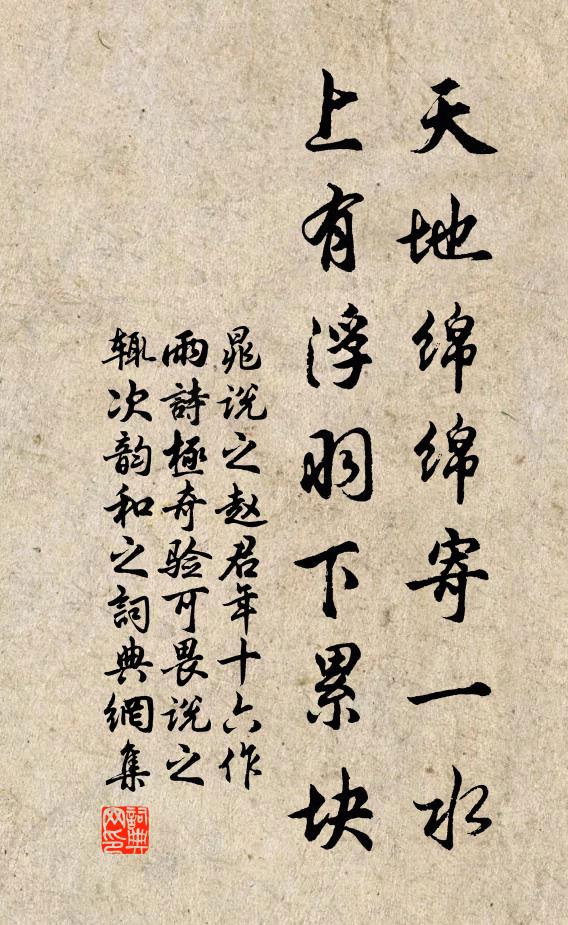 天地绵绵寄一水
上有浮羽下累块
晁说之赵君年十六作
雨詩極奇验可畏说之
辄次韵和之詞典網集
詞典網印